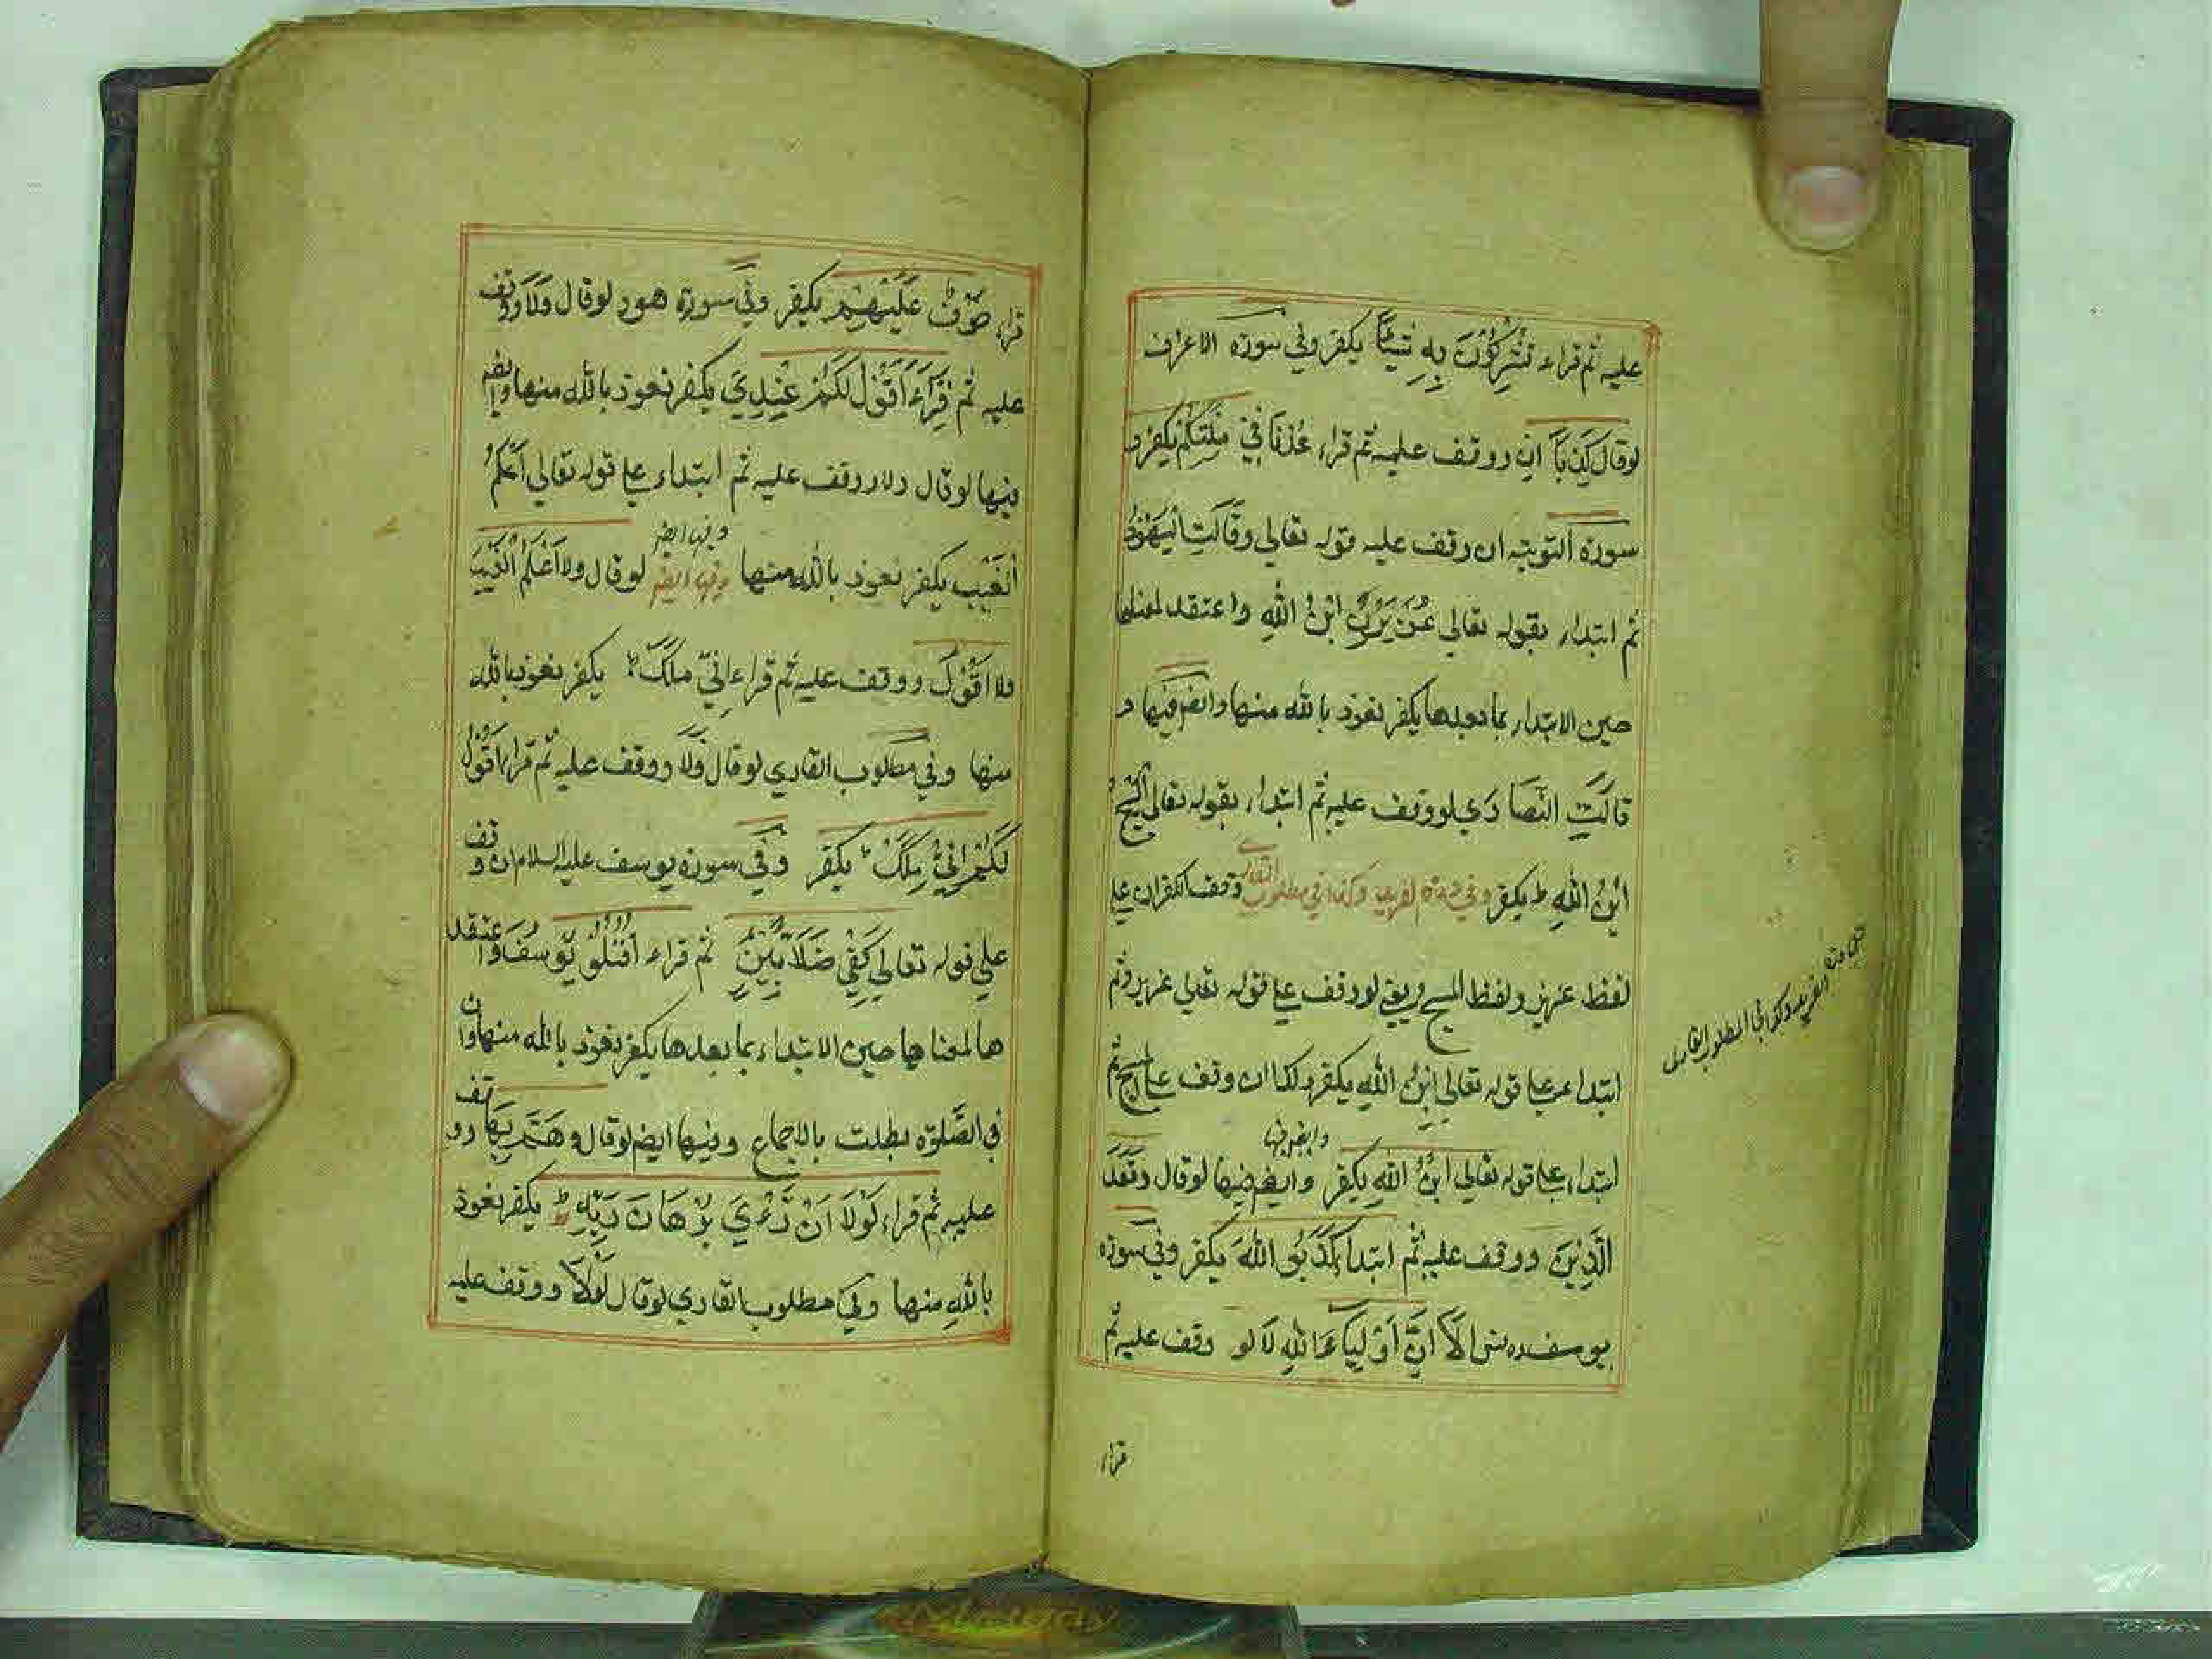 عليه ثم قراء تُشْرِكُوْنَ بِهِ شَيْئًا يكفر وفي سورة الاعراف
لوقال كَذِبًا اِن ووقف عليه ثم قراء عُدْنَا فِي مِلَّتِكُمْ يكفر و
سورة التوبته ان وقف عليه قوله تعالي وَقَالَتِ الْيَهُوْدُ
ثم ابتداء بقوله تعالي عُزَيْرُ ابْنُ اللهِ واعتقد لمعناها
حين الابتداء بما بعدها يكفر نعوذ بالله منها وايضر فيها و
قَالَتِ النَّصَارَي لو وقف عليه ثم ابتداء بقوله تعالي الْمَسِيْحُ
ابْنُ اللهِ ط يكفر وقف الكفران علي
لفظ عزير ولفظ المسيح لو وقف علي قوله تعالي عزير ثم
ابتداء علي قوله تعالي ابْنُ اللهِ يكفر وكذا ان وقف علي المسيح ثم
وايضر فيها
ابتداء علي قوله تعالي ابْنُ اللهِ يكفر وايضر فيها لوقال وَقَعَدَ
الَّذِيْنَ ووقف عليه ثم ابتداء كَذَبُوا اللهَ يكفر وفي سورة
يونس اَلَا اِنَّ اَوْلِيَاءَ اللهِ لَا لو وقف عليه ثم
قراء
قراء خَوْفٌ عَلَيْهِمْ يكفر وفي سورة هود لوقال وَلَا ووقف
عليه ثم قراء اَقُوْلُ لَكُمْ عِنْدِيَ يكفر نعوذ بالله منها وايضر
فيها لوقال ولا ووقف عليه ثم ابتداء علي قوله تعالي اَعْلَمُ
وفيها ايضر
الْغَيْبَ يكفر نعوذ بالله منها وفيها ايضر لوقال ولا اَعْلَمُ الْغَيْبَ
ولا اَقُوْلُ ووقف عليه ثم قراء اِنِّيْ مَلَكٌ يكفر نعوذ بالله
منها وفي مطلوب القاري لوقال وَلَا ووقف عليه ثم قراء اَقُوْلُ
لَكُمْ اِنِّيْ مَلَكٌ يكفر وفي سورة يوسف عليه السلام ان وقف
علي قوله تعالي لَفِيْ ضَلَالٍ مُّبِيْنٍ ثم قراء اقْتُلُوْا يُوْسُفَ واعتقد
ها لمعناها حين الابتداء بما بعدها يكفر نعوذ بالله منها وان
في الصَّلوٰة بطلت بالاجماع وفيها ايضر لوقال وَهَمَّ بِهَا ووقف
عليه ثم قراء لَوْلَا اَنْ رَّءٰي بُرْهَانَ رَبِّهِ ط يكفر نعوذ
بالله منها وفي مطلوب القاري لوقال لَوْلَا ووقف عليه